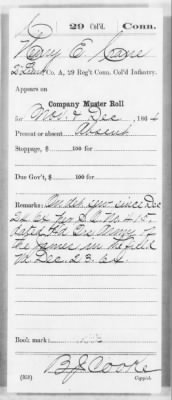 29 Col'd. Conn.
Henry E.
2 Lieut, Co. A, 29 Reg't Conn. Col'd Infantry.
Appears on
Company Muster Roll
for Nov. & Dec, 1864
Present or absent Absent
Stoppage, $ 100 for
Due Gov't, $ 100 for
Remarks: On det. serv since Dec
24 64 per S.O. No 415
dated Hd Qrs Army of
the James in the field
Va Dec. 23. 64.
Book mark:
B J Cooke
(358) Copyist.